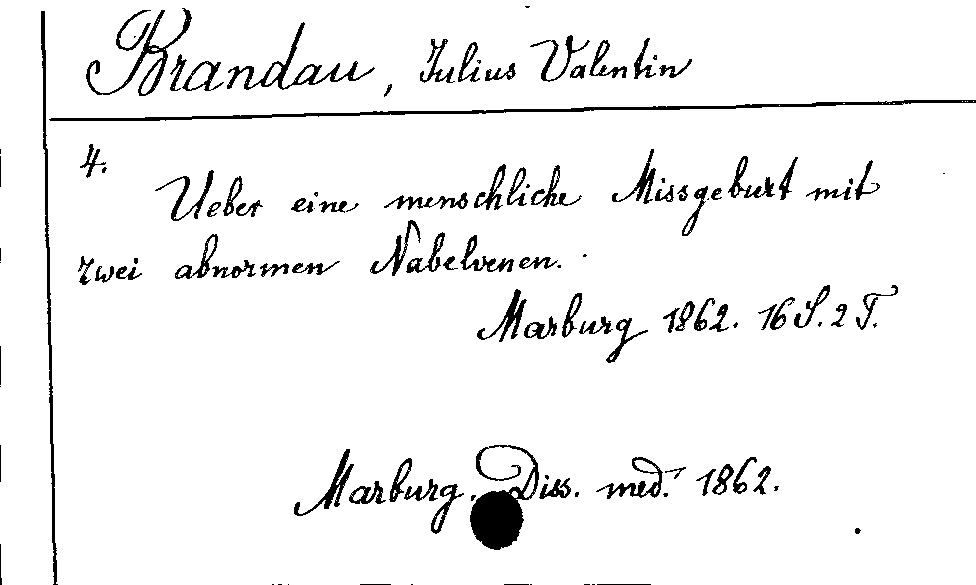 Brandau, Julius Valentin
4.
Ueber eine menschliche Missgeburt mit
zwei abnormen Nabelvenen.
Marburg 1862. 16 S. 2 T.
Marburg. Diss. med. 1862.